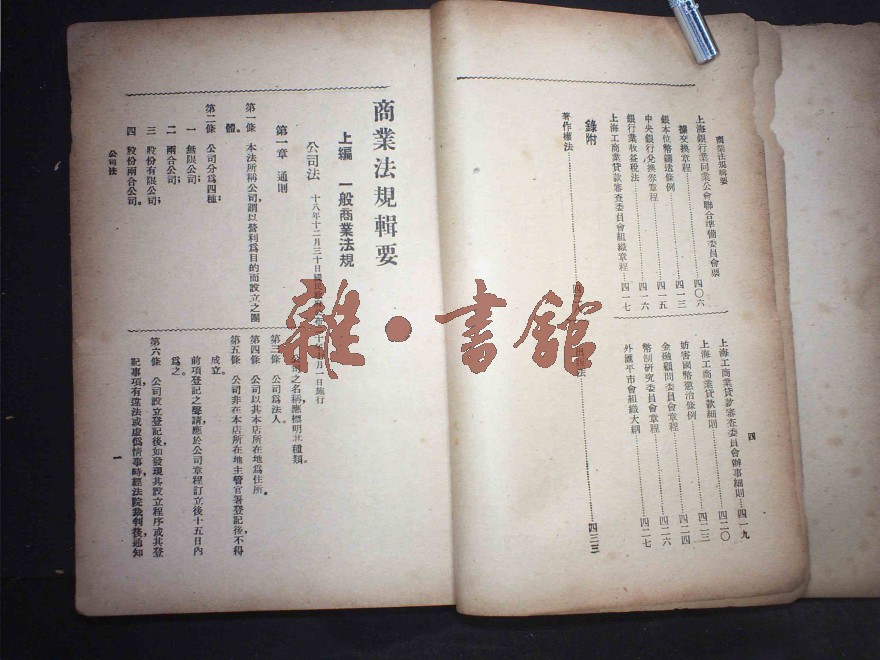 商業法規輯要
四
上海銀行業同業公會聯合準備委員會票
據交換章程………四〇六
銀本位幣鑄造條例………四一三
中央銀行兌換券章程………四一五
銀行業收益稅法………四一六
上海工商業貸款審查委員會組織章程………四一七
上海工商業貸款審查委員會辦事細則…四一九
上海工商業貸款細則………四二〇
妨害國幣懲治條例………四二三
金融顧問委員會章程………四二四
幣制研究委員會章程………四二六
外匯平市會組織大綱………四二七
附錄
著作權法………四
出版法………四三三
商業法規輯要
上編 一般商業法規
公司法 十八年十二月三十日國民政府
年七月一日施行
第一章 通則
第一條 本法所稱公司,謂以營利為目的而設立之團
體。
第二條 公司分為四種:
一 無限公司;
二 兩合公司;
三 股份有限公司;
四 股份兩合公司。
公司之名稱,應標明其種類。
第三條 公司為法人。
第四條 公司以其本店所在地為住所。
第五條 公司非在本店所在地主管官署登記後,不得
成立。
前項登記之聲請,應於公司章程訂立後十五日內
為之。
第六條 公司設立登記後,如發現其設立程序或其登
記事項,有違法或虛偽情事時,經法院裁判後,通知
公司法
一
雜·書館